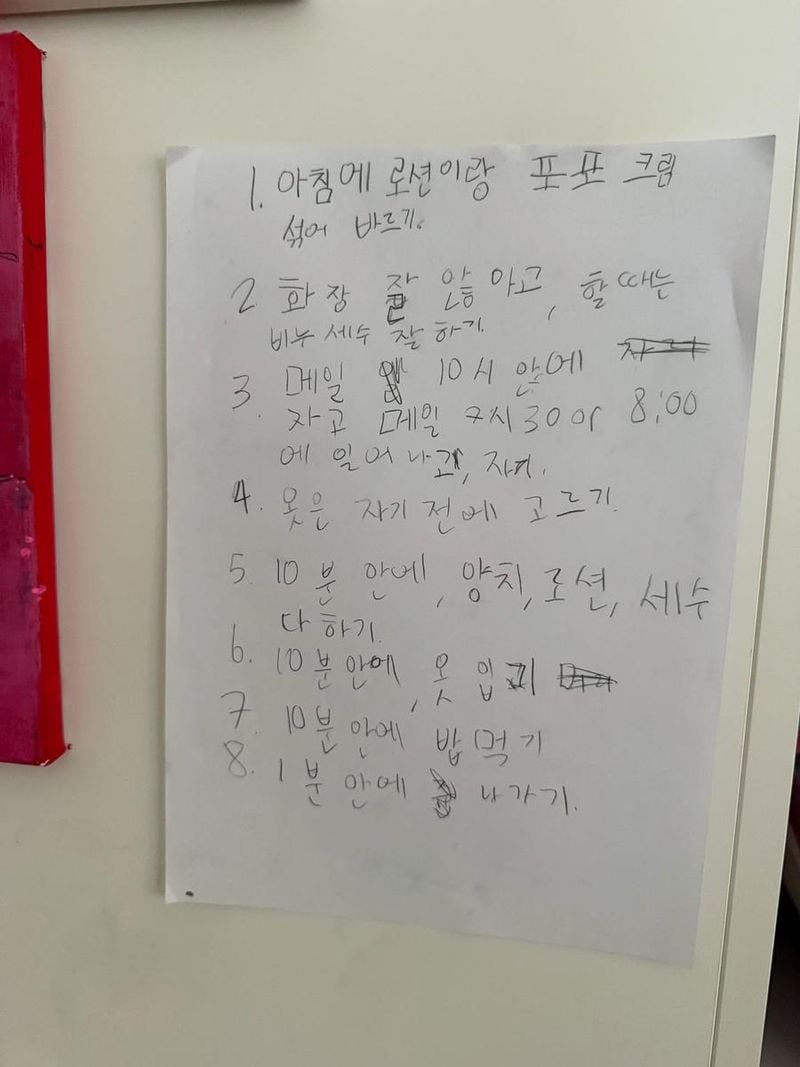 1. 아침에 로션이랑 포포 크림
섞어 바르기.
2 화장 잘 않 하고, 할때는
비누 세수 잘 하기.
3. 메일 10시 안에
자고 메일 7시 30 or 8:00
에 일어나고, 자며.
4. 옷은 자기 전에 고르기.
5. 10분 안에, 양치, 로션, 세수
다 하기.
6. 10분안에, 옷 입기
7. 10분 안에 밥 먹기
8. 1분 안에 나가기.